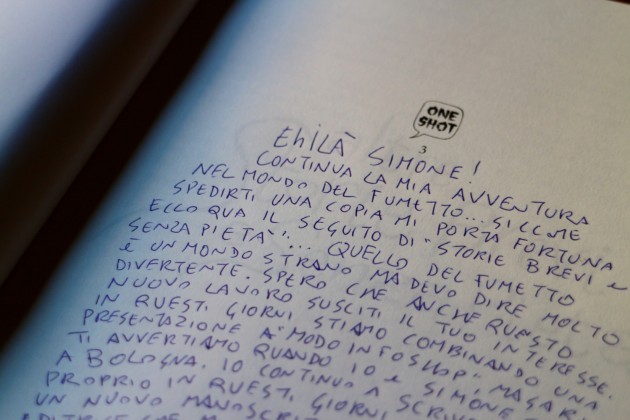 ONE
SHOT
3
EHILÀ SIMONE!
CONTINUA LA MIA AVVENTURA
NEL MONDO DEL FUMETTO... SICCOME
SPEDIRTI UNA COPIA MI PORTA FORTUNA
ECCO QUA IL SEGUITO DI "STORIE BREVI E
SENZA PIETÀ"... QUELLO DEL FUMETTO
È UN MONDO STRANO MA DEVO DIRE MOLTO
DIVERTENTE. SPERO CHE ANCHE QUESTO
NUOVO LAVORO SUSCITI IL TUO INTERESSE.
IN QUESTI GIORNI STIAMO COMBINANDO UNA
PRESENTAZIONE A "MODO INFOSHOP", MAGARI
TI AVVERTIAMO QUANDO IO E SIMONE
A BOLOGNA. IO CONTINUO A
PROPRIO IN QUESTI GIORNI
UN NUOVO